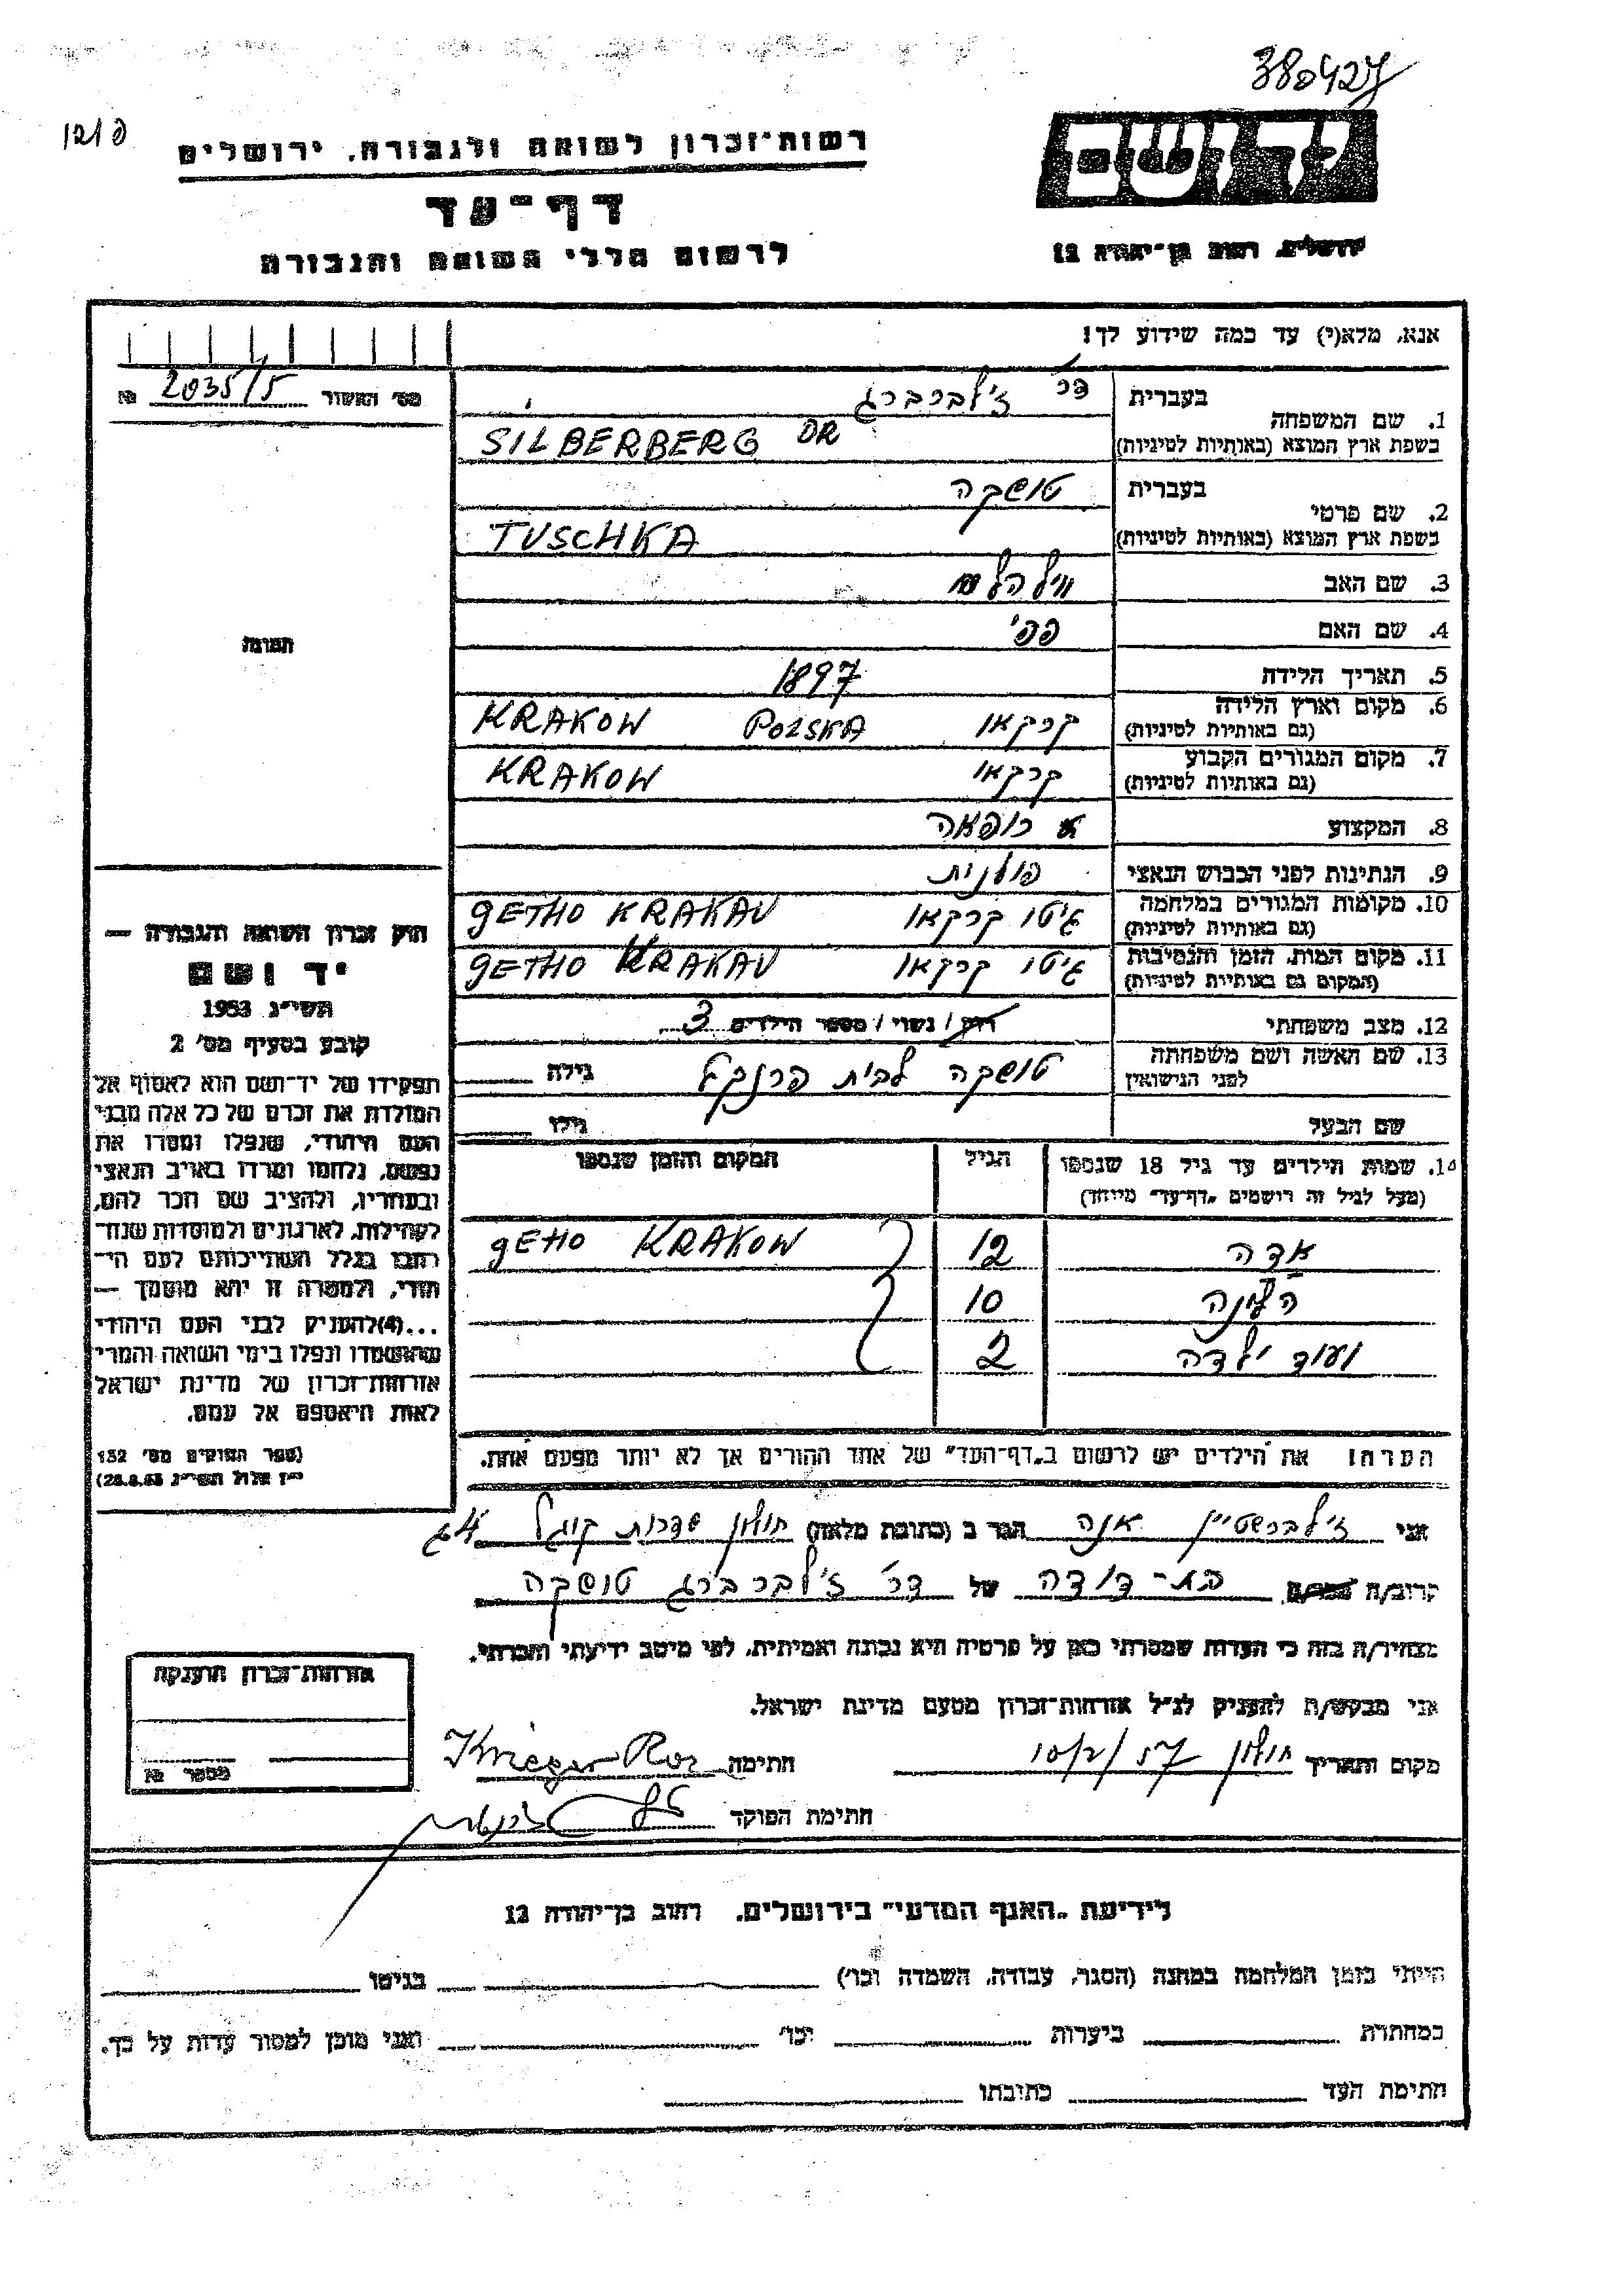 380427
פ/121
יד ושם
רשות־זכרון לשואה ולגבורה, ירושלים
דף־עד
לרשום חללי השואה והגבורה
ירושלים, רחוב בן־יהודה 12
אנא, מלא(י) עד כמה שידוע לך!
מס׳ האשור 2035/5 №
1. שם המשפחה
בעברית דר׳ זילברברג
בשפת ארץ המוצא (באותיות לטיניות) SILBERBERG DR
2. שם פרטי
בעברית טושקה
בשפת ארץ המוצא (באותיות לטיניות) TUSCHKA
3. שם האב וילהלם
4. שם האם פפי
5. תאריך הלידה 1897
6. מקום וארץ הלידה (גם באותיות לטיניות) קרקאו POLSKA KRAKOW
7. מקום המגורים הקבוע (גם באותיות לטיניות) קרקאו KRAKOW
8. המקצוע רופאה
9. הנתינות לפני הכבוש הנאצי פולנית
10. מקומות המגורים במלחמה (גם באותיות לטיניות) גיטו קרקאו GETHO KRAKAU
11. מקום המות, הזמן והנסיבות (המקום גם באותיות לטיניות) גיטו קרקאו GETHO KRAKAU
12. מצב משפחתי רווק / נשוי / מספר הילדים 3
13. שם האשה ושם משפחתה לפני הנישואין טושקה לבית פרנקל גילה
שם הבעל גילו
14. שמות הילדים עד גיל 18 שנספו הגיל המקום והזמן שנספו
(מעל לגיל זה רושמים „דף־עד״ מיוחד)
אדה 12 GETTO KRAKOW
הלינה 10
ועוד ילדה 2
הערה: את הילדים יש לרשום ב„דף־העד״ של אחד ההורים אך לא יותר מפעם אחת.
התמונה
חוק זכרון השואה והגבורה —
יד ושם
תשי״ג 1953
קובע בסעיף מס׳ 2
תפקידו של יד־ושם הוא לאסוף אל
המולדת את זכרם של כל אלה מבני
העם היהודי, שנפלו ומסרו את
נפשם, נלחמו ומרדו באויב הנאצי
ובעוזריו, ולהציב שם וזכר להם,
לקהילות, לארגונים ולמוסדות שנח־
רבו בגלל השתייכותם לעם הי־
הודי, ולמטרה זו יהא מוסמך —
...(4)להעניק לבני העם היהודי
שהושמדו ונפלו בימי השואה והמרי
אזרחות־זכרון של מדינת ישראל
לאות היאספם אל עמם.
(ספר החוקים מס׳ 132
י״ז אלול תשי״ג 28.8.53)
אני זילברשטיין אנה הגר ב (כתובת מלאה) חולון שדרות קוגל 4ג
קרוב/ה מכר/ה בת-דודה של דר׳ זילברברג טושקה
מצהיר/ה בזה כי העדות שמסרתי כאן על פרטיה היא נכונה ואמיתית, לפי מיטב ידיעתי והכרתי.
אני מבקש/ת להעניק לנ״ל אזרחות־זכרון מטעם מדינת ישראל.
מקום ותאריך חולון 10/2/57 חתימה
חתימת הפוקד
אזרחות־זכרון הוענקה
מספר №
לידיעת „האגף המדעי״ בירושלים, רחוב בן־יהודה 12
הייתי בזמן המלחמה במחנה (הסגר, עבודה, השמדה וכו׳) בגיטו
במחתרת ביערות וכו׳ ואני מוכן למסור עדות על כך.
חתימת העד כתובתו